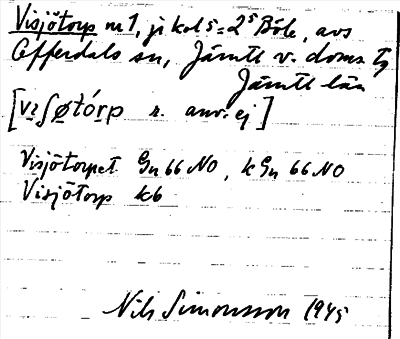 Visjötorp nr 1, jr kol 5 = 2⁵ Böle, avs
Offerdals sn, Jämtl v. doms tg
Jämtl län
[vɪʃøtórp r. anv. ej]
Visjötorpet Gn 66 NO, k Gn 66 NO
Visjötorp kb
Nils Simonsson 1945